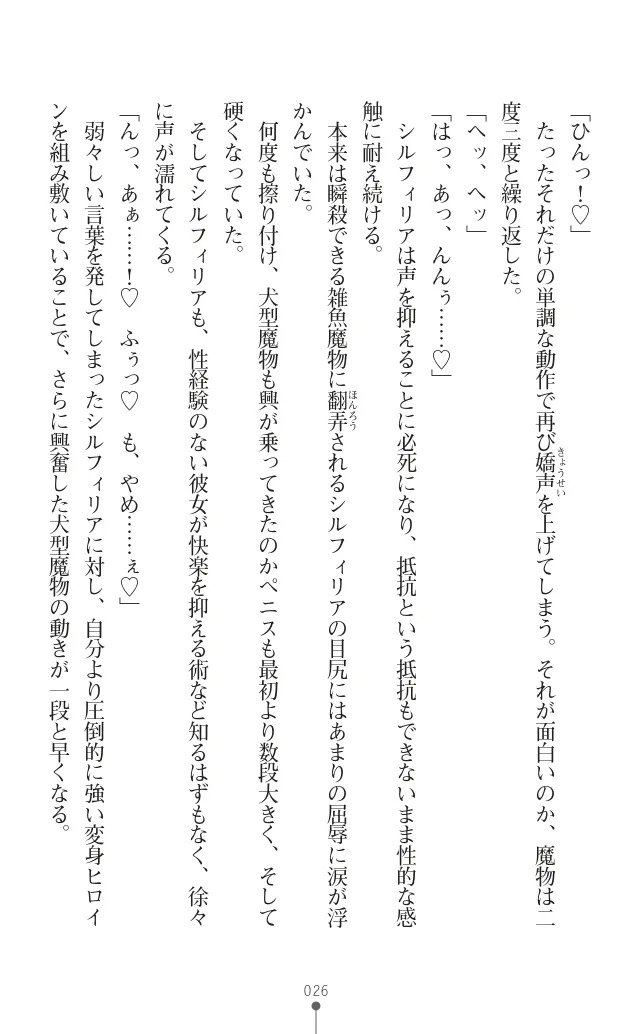 「ひんっ！♡」
　たったそれだけの単調な動作で再び嬌声を上げてしまう。それが面白いのか、魔物は二
度三度と繰り返した。
「ヘッ、ヘッ」
「はっ、あっ、んんぅ……♡」
　シルフィリアは声を抑えることに必死になり、抵抗という抵抗もできないまま性的な感
触に耐え続ける。
　本来は瞬殺できる雑魚魔物に翻弄されるシルフィリアの目尻にはあまりの屈辱に涙が浮
かんでいた。
　何度も擦り付け、犬型魔物も興が乗ってきたのかペニスも最初より数段大きく、そして
硬くなっていた。
　そしてシルフィリアも、性経験のない彼女が快楽を抑える術など知るはずもなく、徐々
に声が濡れてくる。
「んっ、あぁ……！♡　ふぅっ♡　も、やめ……ぇ♡」
　弱々しい言葉を発してしまったシルフィリアに対し、自分より圧倒的に強い変身ヒロイ
ンを組み敷いていることで、さらに興奮した犬型魔物の動きが一段と早くなる。
きょうせい
ほんろう
026